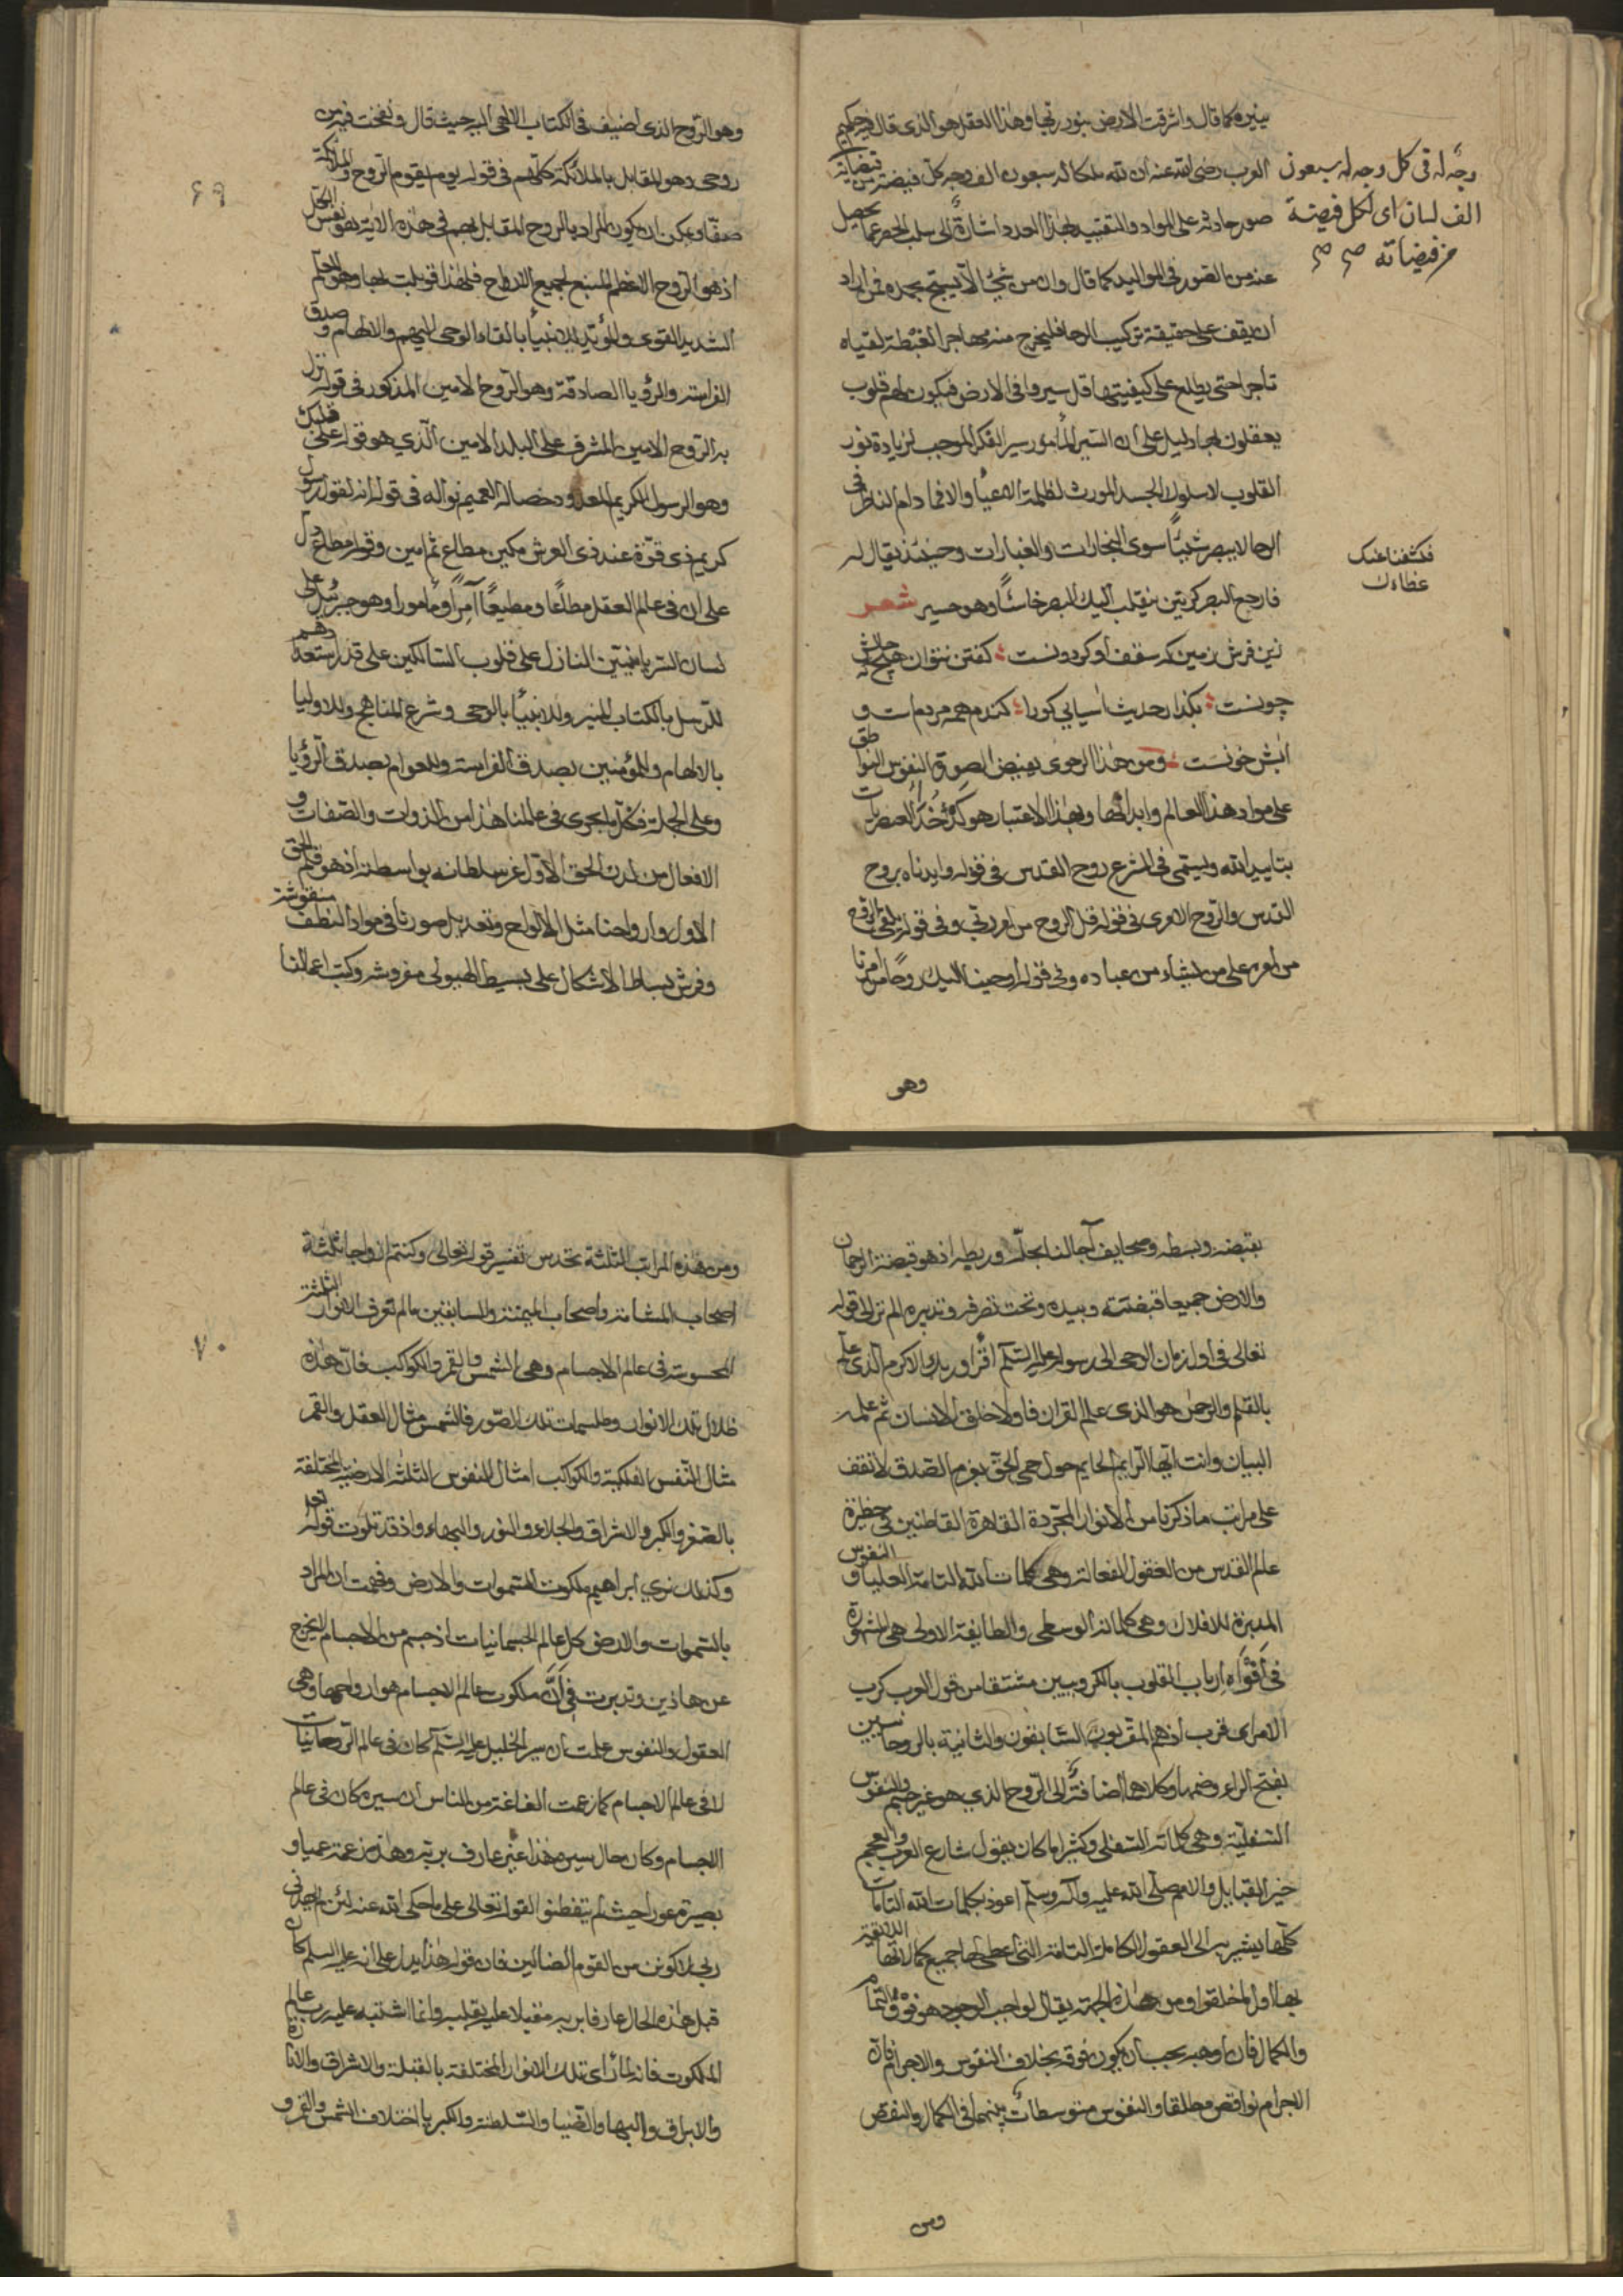 ينيره كما قال واشرقت الارض بنور ربها وهذا العقل هو الذى قال فيه حكيم
العرب رضى الله عنه ان لله ملكا له سبعون الف وجه كل فيضة من فيضاته
صور حادثه على المواد والتقييد بهذا العدد اشارةً الى سلب الحصر عما يحصل
عنه من الصور فى المواليد كما قال وان من شئ الا يسبح بحمده فمن اراد
ان يقف على حقيقة تركيب الرحا فليخرج منه مهاجرا لغبطة لقياه
تاجرا حتى يطلع على كيفيتها قل سيروا فى الارض فيكون لهم قلوب
يعقلون بها دليل على ان السير المأمور سير الفكر الموجب لزيادة نور
القلوب لا سلوك الجسد المورث لظلمة الاعياء والافما دام الناظر فى
الرحا لا يبصر شيئًا سوى البخارات والغبارات وحينئذ يقال له
فارجع البصر كرتين ينقلب اليك البصر خاسئًا وهو حسير شعر
زين فرش زمين كه سقف او كردونست كفتن نتوان هيچ كه حالش
چونست بكذار حديث آسيابى كورا كندم همه مردم است و
آبش خونست ومن هذا الرحوى يفيض الصور والنفوس النواطق
على مواد هذا العالم وابدانها وبهذا الاعتبار هو كدخدا العنصريات
بتاييد الله ويسمى فى الشرع روح القدس فى قوله وايدناه بروح
القدس والروح الامرى فى قوله قل الروح من امر ربي وفى قوله يلقى الروح
من امره على من يشاء من عباده وفى قوله اوحينا اليك روحًا من امرنا
وجه له فى كل وجه له سبعون
الف لسان اى لكل فيضة
من فيضاته صح صح
فكشفنا عنك
غطاءك
وهو
٦٩
وهو الروح الذى اضيف فى الكتاب الالهى اليه حيث قال ونفخت فيه من
روحى وهو المقابل بالملائكة كلهم فى قوله يوم يقوم الروح والملائكة
صفا ويمكن ان يكون المراد بالروح المقابل بهم فى هذه الاية نفوس الكل
اذ هو الروح الاعظم المنبع لجميع الارواح فلهذا قوبلت بها وهو المعلم
الشديد القوى والمؤيد للانبيآء بالقاء الوحى اليهم والالهام وصدق
الفراسة والرؤيا الصادقة وهو الروح الامين المذكور فى قوله نزل
به الروح الامين المشرف على البلد الامين الذي هو قوله على قلبك
وهو الرسول الكريم المعدود خصاله العميم نواله فى قوله انه لقول رسول
كريم ذى قوة عند ذى العرش مكين مطاع ثم امين وقوله مطاع دل
على ان فى عالم العقل مطاعًا ومطيعًا آمرًا ومأمورا وهو جبرئيل على
لسان السريانيين النازل على قلوب السالكين على قدر استعدادهم
للرسل بالكتاب المنير وللانبيآ بالوحى وشرع المناهج وللاوليا
بالالهام وللمؤمنين بصدق الفراسة وللعوام بصدق الرؤيا
وعلى الجملة فكل ما يجرى فى عالمنا هذا من الذوات والصفات و
الافعال من لدن الحق الاول عز سلطانه بواسطته اذ هو قلم الحق
الاول وارواحنا مثل الالواح وتعديل صورنا فى مواد النطف منقوشة
وفرش بساط الاشكال على بسيط الهيولى مفروشه وكتب اعمالنا
بقبضه وبسطه وصحايف آجالنا بحله وربطه اذ هو قبضة الرحمان
والارض جميعا قبضته وبيده وتحت تصرفه وتدبيره الم تر الى قوله
تعالى فى اول زمان الوحى الى رسوله عليه السلم اقرأ وربك الاكرم الذى علم
بالقلم والرحمن هو الذى علم القران فاولا خلق الانسان ثم علمه
البيان وانت ايها الرايم الحايم حول حمى الحق بعزم الصدق لا تقف
على مراتب ما ذكرنا من الانوار المجردة القاهرة القاطنين فى حظيرة
عالم القدس من العقول الفعالة وهى كلمات الله التامة العليا والنفوس
المدبرة للافلاك وهى كلماته الوسطى والطايفة الاولى هى المشهورة
فى افواه ارباب القلوب بالكروبيين مشتقا من قول العرب كرب
الامر اى قرب اذ هم المقربون السابقون والثانية بالروحانيين
بفتح الراء وضمها وكلاهما اضافة الى الروح الذي هو غير جسم والنفوس
السفلية وهى كلماته السفلى وكثيرا ما كان يقول شارع العرب والعجم
خير القبايل والامم صلى الله عليه وآله وسلم اعوذ بكلمات الله التامات
كلها يشير به الى العقول الكاملة التامة التى اعطى لها جميع كمالاتها اللائقة
بها اول ما خلقوا ومن هذه الجهة يقال لواجب الوجود هو فوق التمام
والكمال فان واهبه يجب ان يكون فوقه بخلاف النفوس والاجرام فان
الاجرام نواقص مطلقا والنفوس متوسطات بينهما فى الكمال والنقص
ومن
٧٠
ومن هذه المراتب الثلثة تحدس تفسير قوله تعالى وكنتم ازواجا ثلثة
اصحاب المشأمة واصحاب الميمنة والسابقين مالم تعرف الانوار الثلثة
المحسوسة فى عالم الاجسام وهى الشمس والقمر والكواكب فان هذه
ظلال تلك الانوار وطلسمات تلك الصور فالشمس مثال العقل والقمر
مثال النفس الفلكية والكواكب امثال النفوس الثلثة الارضية المختلفة
بالصغر والكبر والاشراق والجلاء والنور والبهاء واذ قد تلوت قوله تعه
وكذلك نري ابراهيم ملكوت السموات والارض وفهمت ان المراد
بالسموات والارض كل عالم الجسمانيات اذ جسم من الاجسام لا يخرج
عن هاذين وتدبرت فى ان ملكوت عالم الاجسام هو ارواحها وهى
العقول والنفوس علمت ان سير الخليل عليه السلم كان فى عالم الروحانيات
لا فى عالم الاجسام كما زعمت الفاغة من الناس ان سيره كان فى عالم
الاجسام وكان حال سيره هذا غير عارف بربه وهذه زعمة عمياء و
بصيرة عوراء حيث لم يتفطنوا لقوله تعالى على ما حكى الله عنه لئن لم يهدنى
ربى لاكونن من القوم الضالين فان قوله هذا يدل على انه عليه السلم كان
قبل هذه الحال عارفا بربه مقبلا عليه بقلبه وانما اشتبه عليه رب عالم
الملكوت فانه لما رآى تلك الانوار المختلفة بالقبلة والاشراق والانارة
والابراق والبها والضيا والسلطنة والكبريا اختلاف الشمس والقمر و